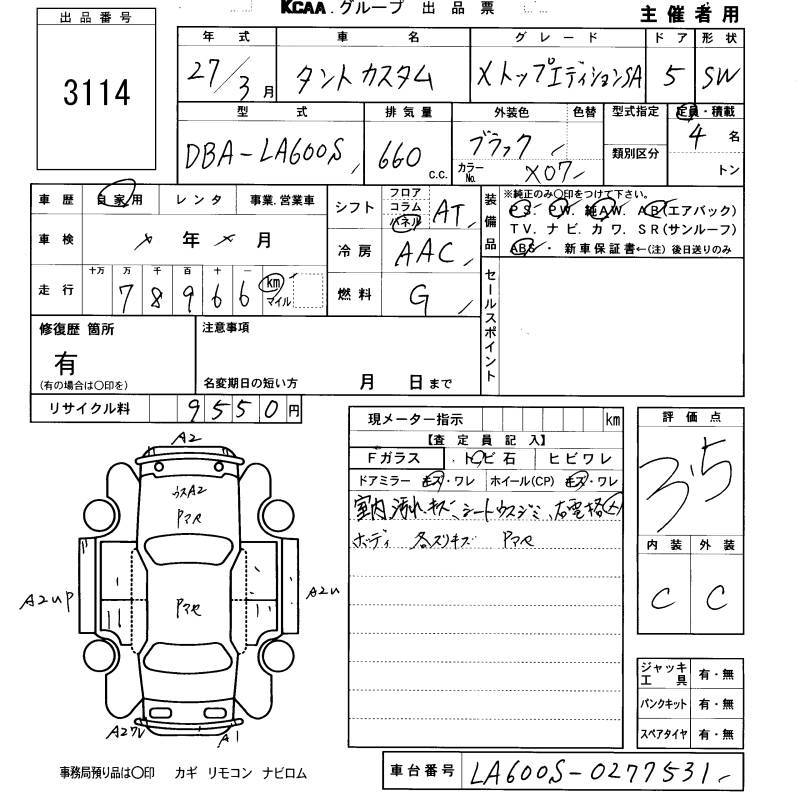 KCAA.グループ 出品票 主催者用
出品番号
3114
年式 車名 グレード ドア 形状
27/3月 タントカスタム XトップエディションSA 5 SW
型式 排気量 外装色 色替 型式指定 定員・積載
DBA-LA600S 660 c.c. ブラック 類別区分 4名
カラーNo. X07 トン
車歴 自家用 レンタ 事業.営業車
シフト フロア コラム パネル AT
装備品 ※純正のみ○印をつけて下さい。
PS. PW. 純AW. AB(エアバッグ)
TV. ナビ. カワ. SR(サンルーフ)
ABS・新車保証書←(注)後日送りのみ
車検 × 年 × 月
冷房 AAC
走行 十万 万 千 百 十 一
78966 km マイル
燃料 G
セールスポイント
修復歴 箇所 注意事項
有
(有の場合は○印を) 名変期日の短い方 月 日まで
リサイクル料 9550円
現メーター指示 km
評価点
3.5
【査定員記入】
Fガラス トビ石 ヒビワレ
ドアミラー キズ・ワレ ホイール(CP) キズ・ワレ
室内汚れキズ、シートウスジミ、右電格
ボディ 各スリキズ Pマセ
内装 外装
C C
A2
ウスA2
Pマセ
A2up A2u
Pマセ
A1
ジャッキ工具 有・無
パンクキット 有・無
スペアタイヤ 有・無
事務局預り品は○印 カギ リモコン ナビロム
車台番号 LA600S-0277531